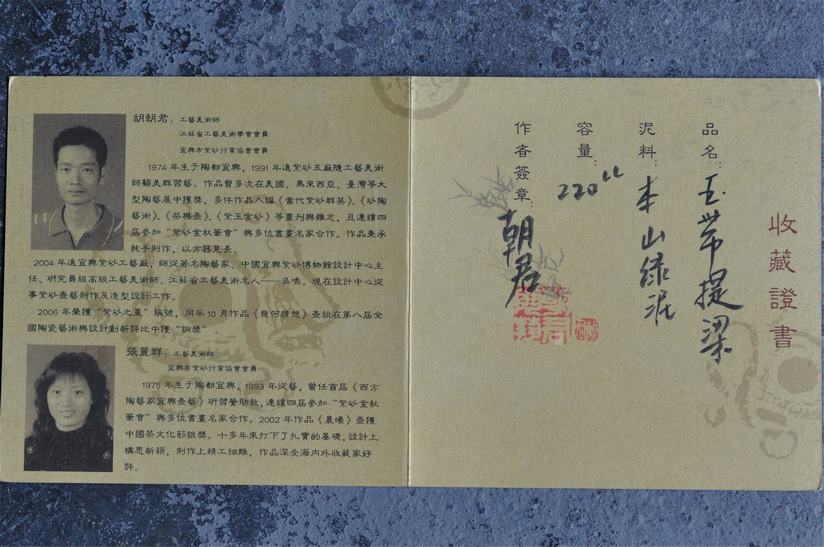 胡朝君：工藝美術師
江蘇省工藝美術學會會員
宜興市紫砂行業協會會員
1974年生于陶都宜興，1991年進紫砂五廠隨工藝美術
師顧美群習藝。作品曾多次在美國、馬來西亞、臺灣等大
型陶藝展中獲獎，多件作品入編《當代紫砂群英》、《砂陶
藝術》、《茶與壺》、《紫玉金砂》等畫刊與雜志，且連續四
屆參加“紫砂金秋筆會”與多位書畫名家合作。作品秉承
純手制作，以方器見長。
2004年進宜興紫砂工藝廠，師從著名陶藝家、中國宜興紫砂博物館設計中心主
任、研究員級高級工藝美術師、江蘇省工藝美術名人——吳鳴。現在設計中心從
事紫砂壺藝制作及造型設計工作。
2006年榮獲“紫砂之星”稱號，同年10月作品《幾何猜想》壺組在第八屆全
國陶瓷藝術與設計創新評比中獲“銅獎”
張麗群：工藝美術師
宜興市紫砂行業協會會員
1975年生于陶都宜興，1993年從藝，曾任首屆《西方
陶藝家宜興壺藝》研習營助教，連續四屆參加“紫砂金秋
筆會”與多位書畫名家合作。2002年作品《晨曦》壺獲
中國茶文化節銀獎。十多年來打下了扎實的基礎，設計上
構思新穎，制作上精工細雕，作品深受海内外收藏家好
評。
收藏證書
品名：玉帶提梁
泥料：本山绿泥
容量：220cc
作者簽章：朝君